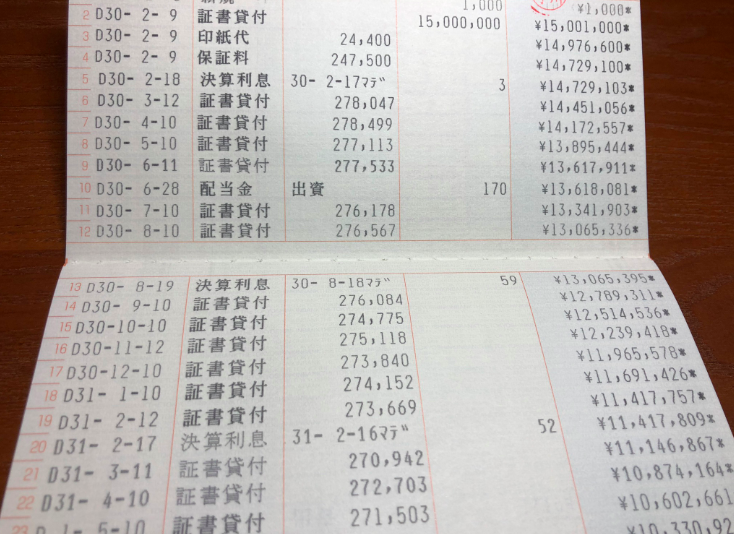 1,000 ¥1,000*
2 D30- 2- 9 証書貸付 15,000,000 ¥15,001,000*
3 D30- 2- 9 印紙代 24,400 ¥14,976,600*
4 D30- 2- 9 保証料 247,500 ¥14,729,100*
5 D30- 2-18 決算利息 30- 2-17マデ 3 ¥14,729,103*
6 D30- 3-12 証書貸付 278,047 ¥14,451,056*
7 D30- 4-10 証書貸付 278,499 ¥14,172,557*
8 D30- 5-10 証書貸付 277,113 ¥13,895,444*
9 D30- 6-11 証書貸付 277,533 ¥13,617,911*
10 D30- 6-28 配当金 出資 170 ¥13,618,081*
11 D30- 7-10 証書貸付 276,178 ¥13,341,903*
12 D30- 8-10 証書貸付 276,567 ¥13,065,336*
13 D30- 8-19 決算利息 30- 8-18マデ 59 ¥13,065,395*
14 D30- 9-10 証書貸付 276,084 ¥12,789,311*
15 D30-10-10 証書貸付 274,775 ¥12,514,536*
16 D30-11-12 証書貸付 275,118 ¥12,239,418*
17 D30-12-10 証書貸付 273,840 ¥11,965,578*
18 D31- 1-10 証書貸付 274,152 ¥11,691,426*
19 D31- 2-12 証書貸付 273,669 ¥11,417,757*
20 D31- 2-17 決算利息 31- 2-16マデ 52 ¥11,417,809*
21 D31- 3-11 証書貸付 270,942 ¥11,146,867*
22 D31- 4-10 証書貸付 272,703 ¥10,874,164*
23 D 1- 5-10 証書貸付 271,503 ¥10,602,661